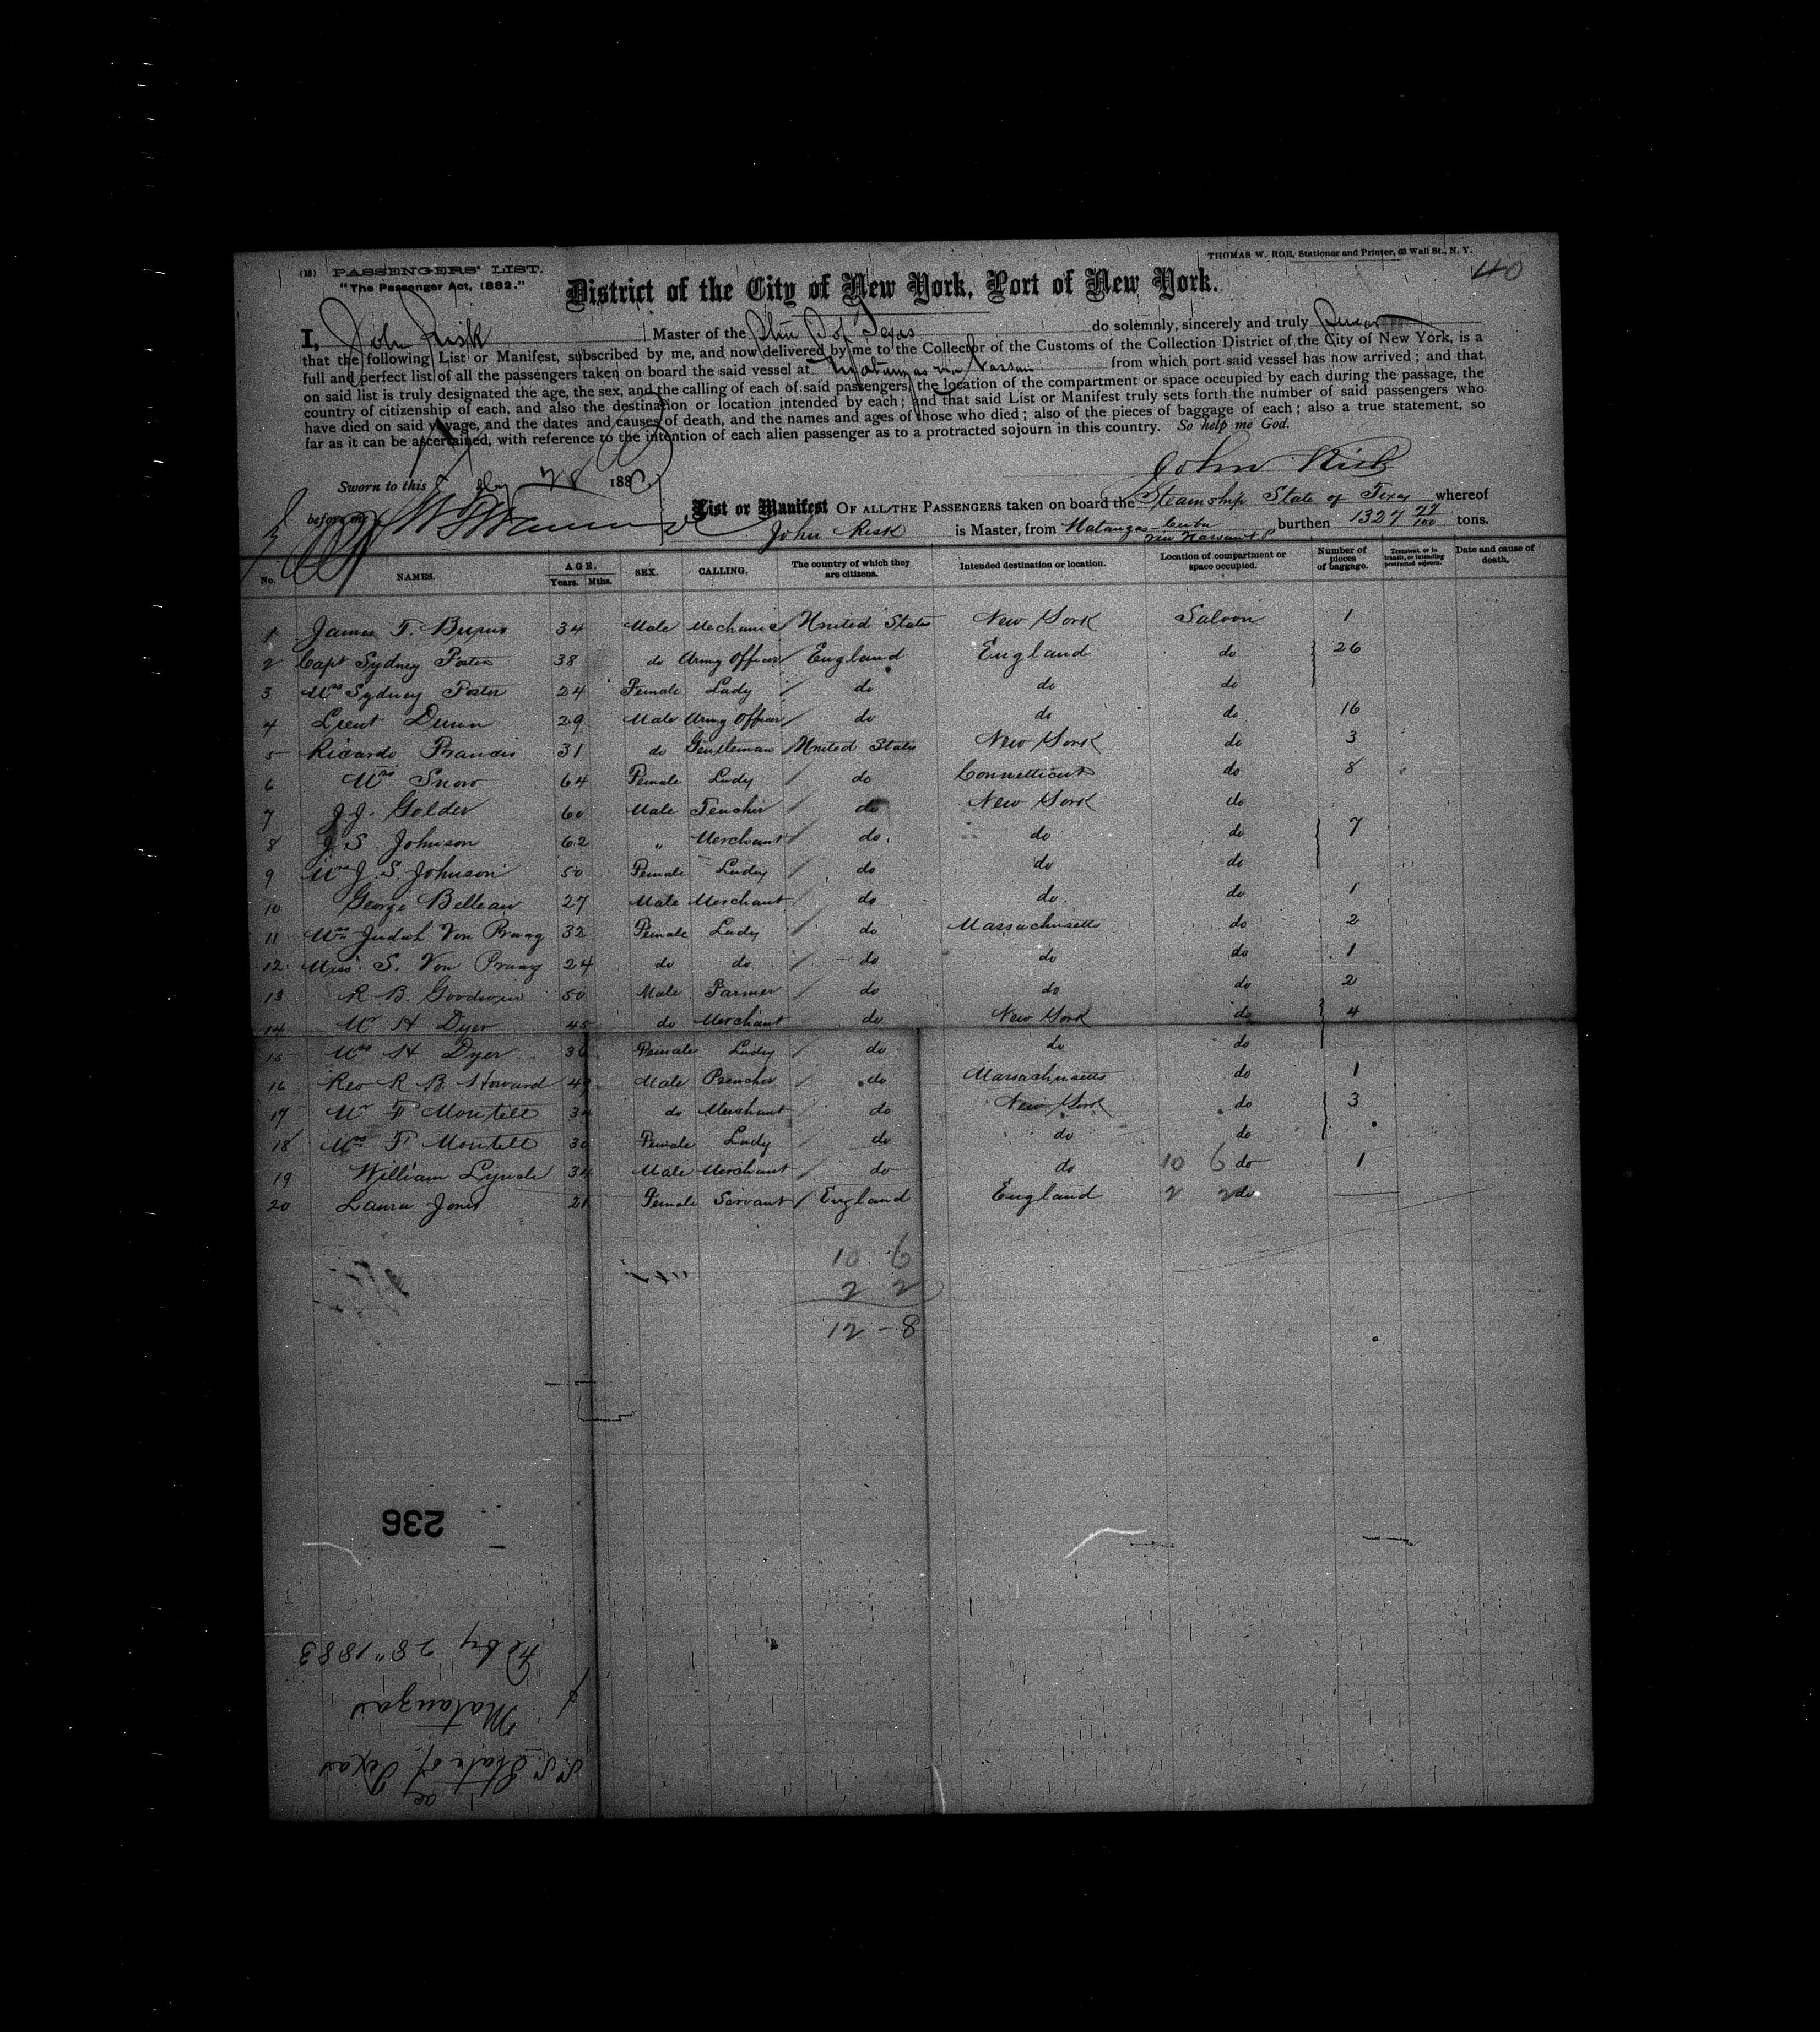 THOMAS W. ROE, Stationer and Printer, 63 Wall St., N. Y.
(18) PASSENGERS' LIST.
"The Passenger Act, 1882."
40
District of the City of New York, Port of New York.
I, John Risk Master of the S of Texas do solemnly, sincerely and truly swear
that the following List or Manifest, subscribed by me, and now delivered by me to the Collector of the Customs of the Collection District of the City of New York, is a
full and perfect list of all the passengers taken on board the said vessel at Matanzas via Nassau from which port said vessel has now arrived; and that
on said list is truly designated the age, the sex, and the calling of each of said passengers, the location of the compartment or space occupied by each during the passage, the
country of citizenship of each, and also the destination or location intended by each; and that said List or Manifest truly sets forth the number of said passengers who
have died on said voyage, and the dates and causes of death, and the names and ages of those who died; also of the pieces of baggage of each; also a true statement, so
far as it can be ascertained, with reference to the intention of each alien passenger as to a protracted sojourn in this country. So help me God.
John Risk
Sworn to this Feby 28 188
before me
List or Manifest OF ALL THE PASSENGERS taken on board the Steamship State of Texas whereof
John Risk is Master, from Matanzas Cuba burthen 1327 77/100 tons.
via Nassau N P
No. NAMES. AGE. Years. Mths. SEX. CALLING. The country of which they are citizens. Intended destination or location. Location of compartment or space occupied. Number of pieces of baggage. Transient, or in transit, or intending protracted sojourn. Date and cause of death.
1 James F. 34 Male Mechanic United States New York Saloon 1
2 Capt Sydney Foster 38 do Army Officer England England do 26
3 Mrs Sydney Foster 24 Female Lady do do do
4 Lieut Dunn 29 Male Army Officer do do do 16
5 Ricardo Francis 31 do Gentleman United States New York do 3
6 Mrs Snow 64 Female Lady do Connetticut do 8
7 J. J. Golder 60 Male Teacher do New York do
8 J. S. Johnson 62 " Merchant do do do 7
9 Mrs J. S. Johnson 50 Female Lady do do do
10 George Belleau 27 Male Merchant do do do 1
11 Mrs Judith Von Praag 32 Female Lady do Massachusetts do 2
12 Miss S. Von Praag 24 do do do do do 1
13 R B. Goodwin 50 Male Farmer do do do 2
14 Mr H Dyer 45 do Merchant do New York do 4
15 Mrs H Dyer Female Lady do do do
16 Rev R B. Howard Male Preacher do Massachusetts do 1
17 Mr F Montell 34 do Merchant do New York do 3
18 Mrs F Montell 30 Female Lady do do do
19 William Lynch 34 Male Merchant do do 10 6 do 1
20 Laura Jones 21 Female Servant England England 2 2 do
10 6
2 2
12 - 8
236
Feby 28" 1883
Matanzas
S.S. State of Texas